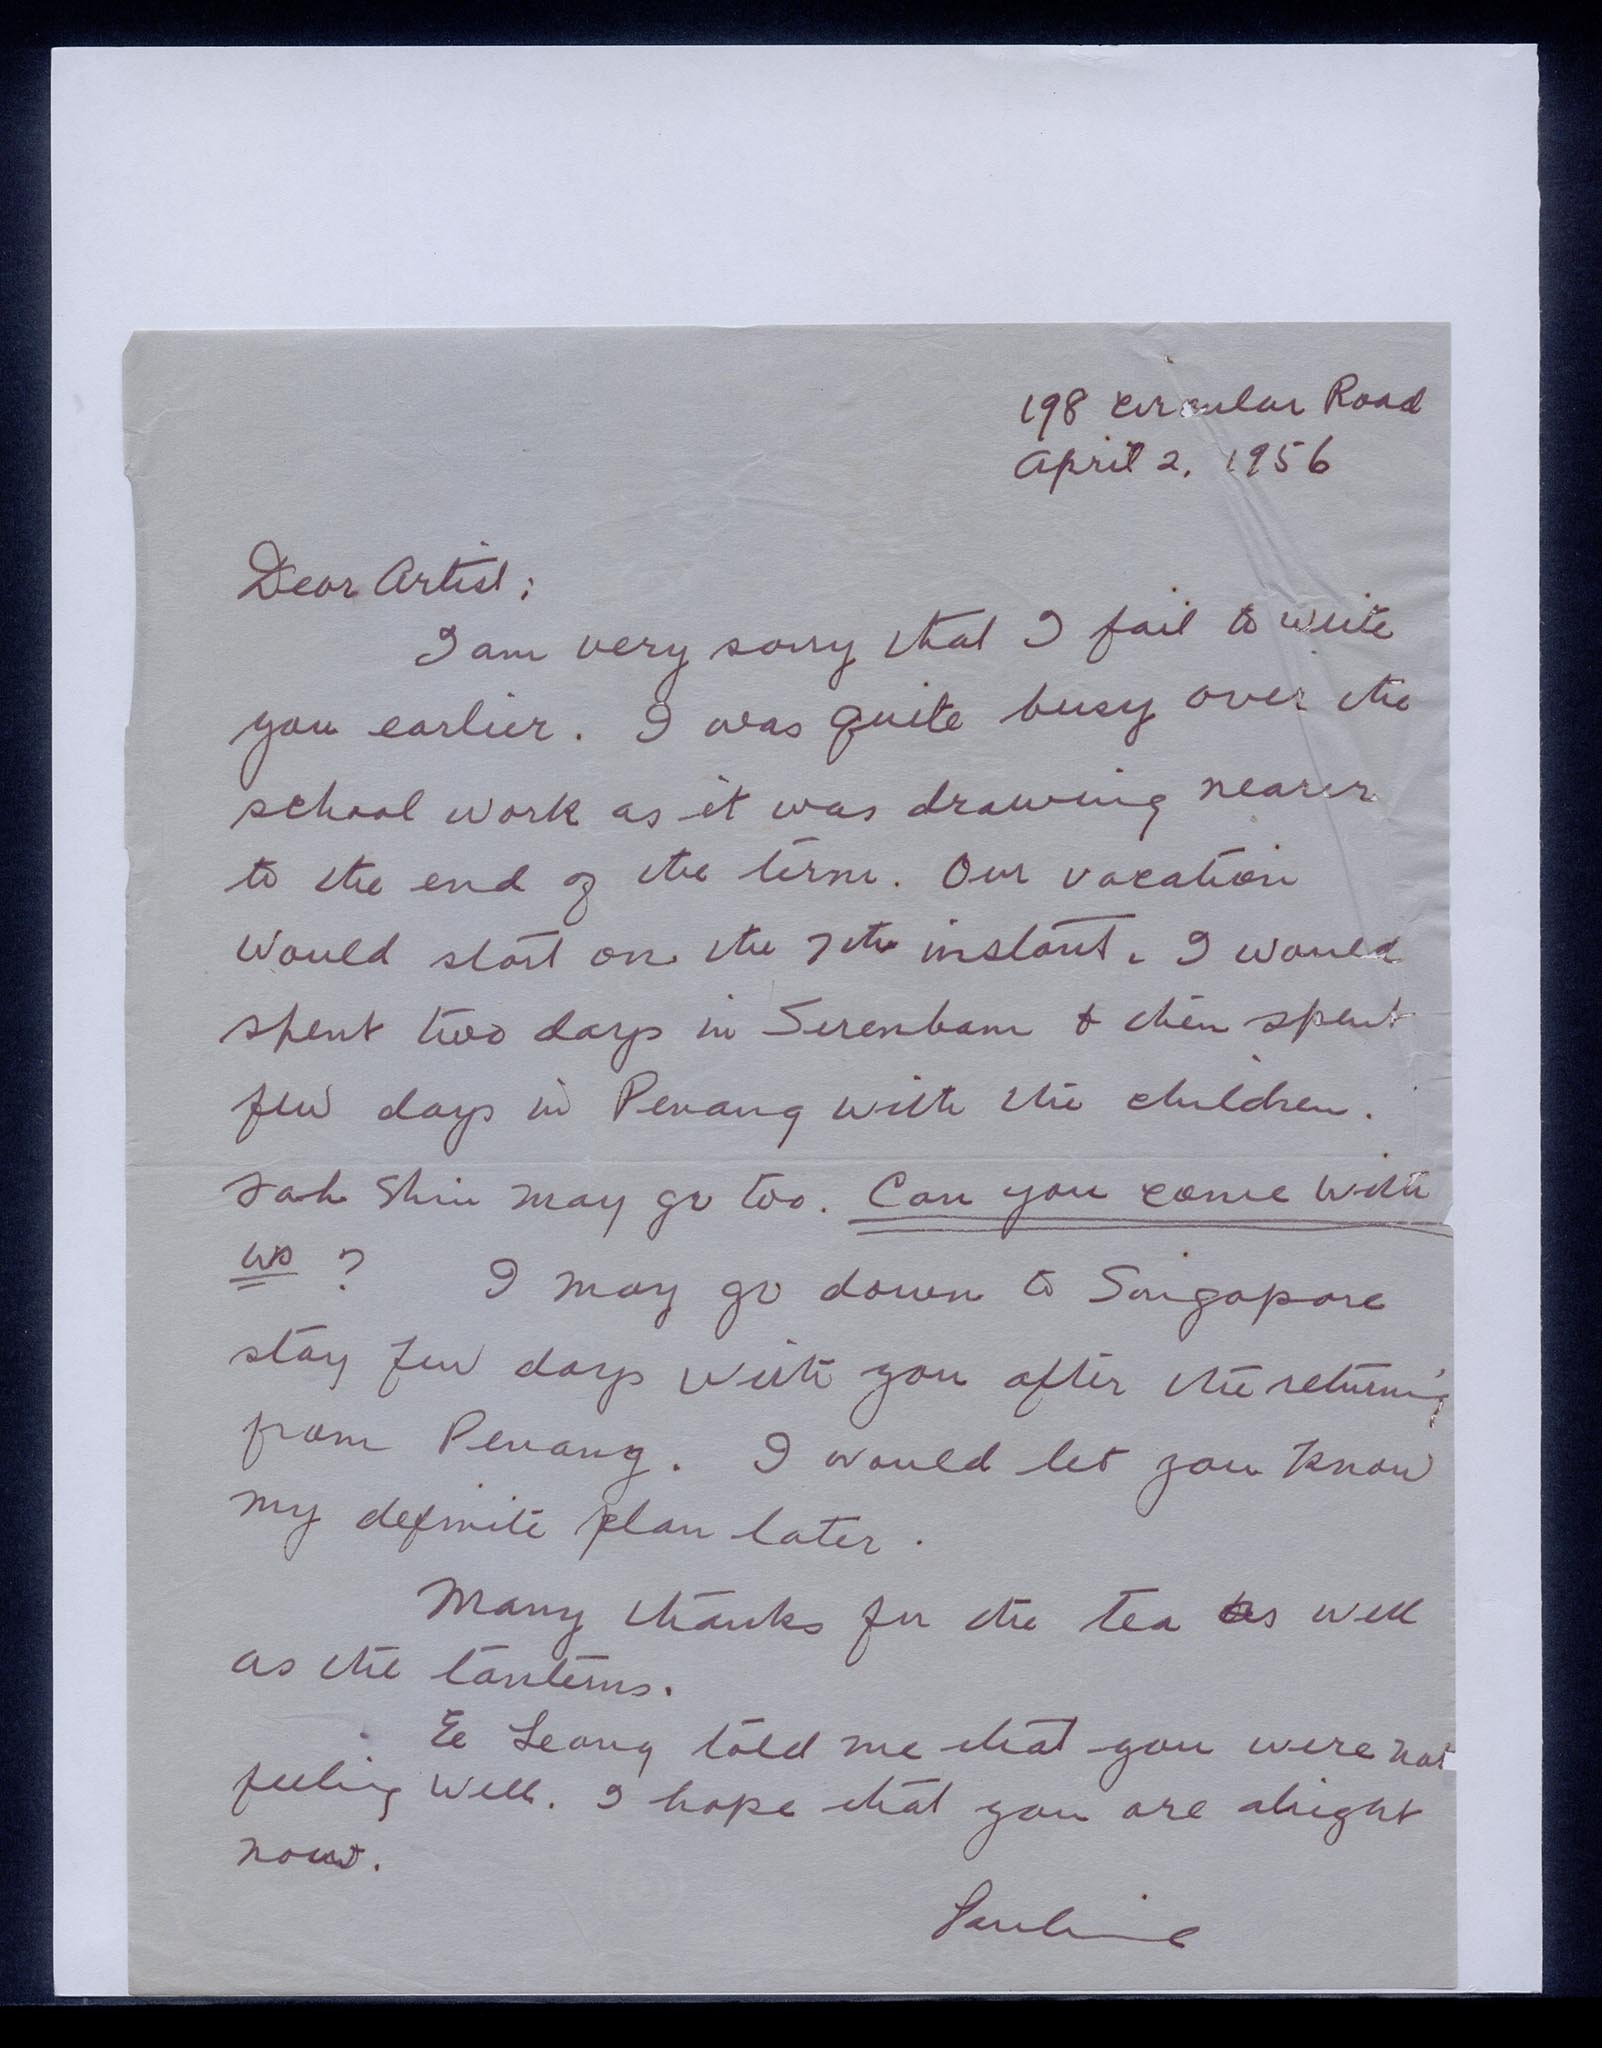 198 Circular Road
April 2, 1956
Dear Artist;
I am very sorry that I fail to write
you earlier. I was quite busy over the
school work as it was drawing nearer
to the end of the term. Our vacation
would start on the 7th instant. I would
spent two days in Serenbam & then spent
few days in Penang with the children.
Sah Shin may go too. Can you come with
us? I may go down to Singapore
stay few days with you after the returning
from Penang. I would let you know
my definite plan later.
Many thanks for the tea as well
as the lanterns.
Ee Leong told me that you were not
feeling well. I hope that you are alright
now.
Pauline